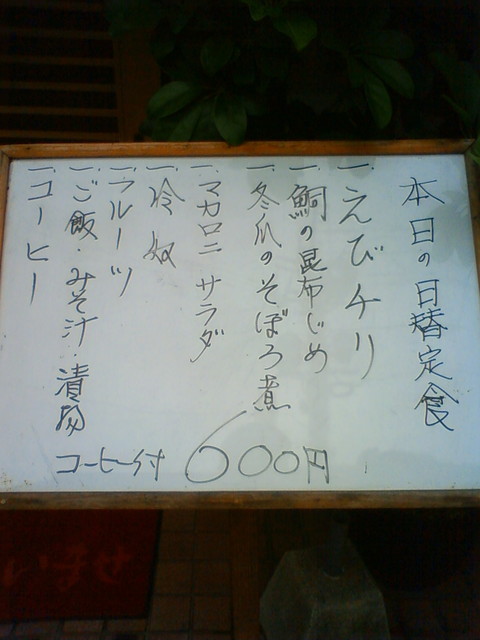 本日の日替定食
一、えびチリ
一、鯛の昆布じめ
一、冬瓜のそぼろ煮
一、マカロニサラダ
一、冷奴
一、フルーツ
一、ご飯・みそ汁・漬物
一、コーヒー
コーヒー付 600円
いませ